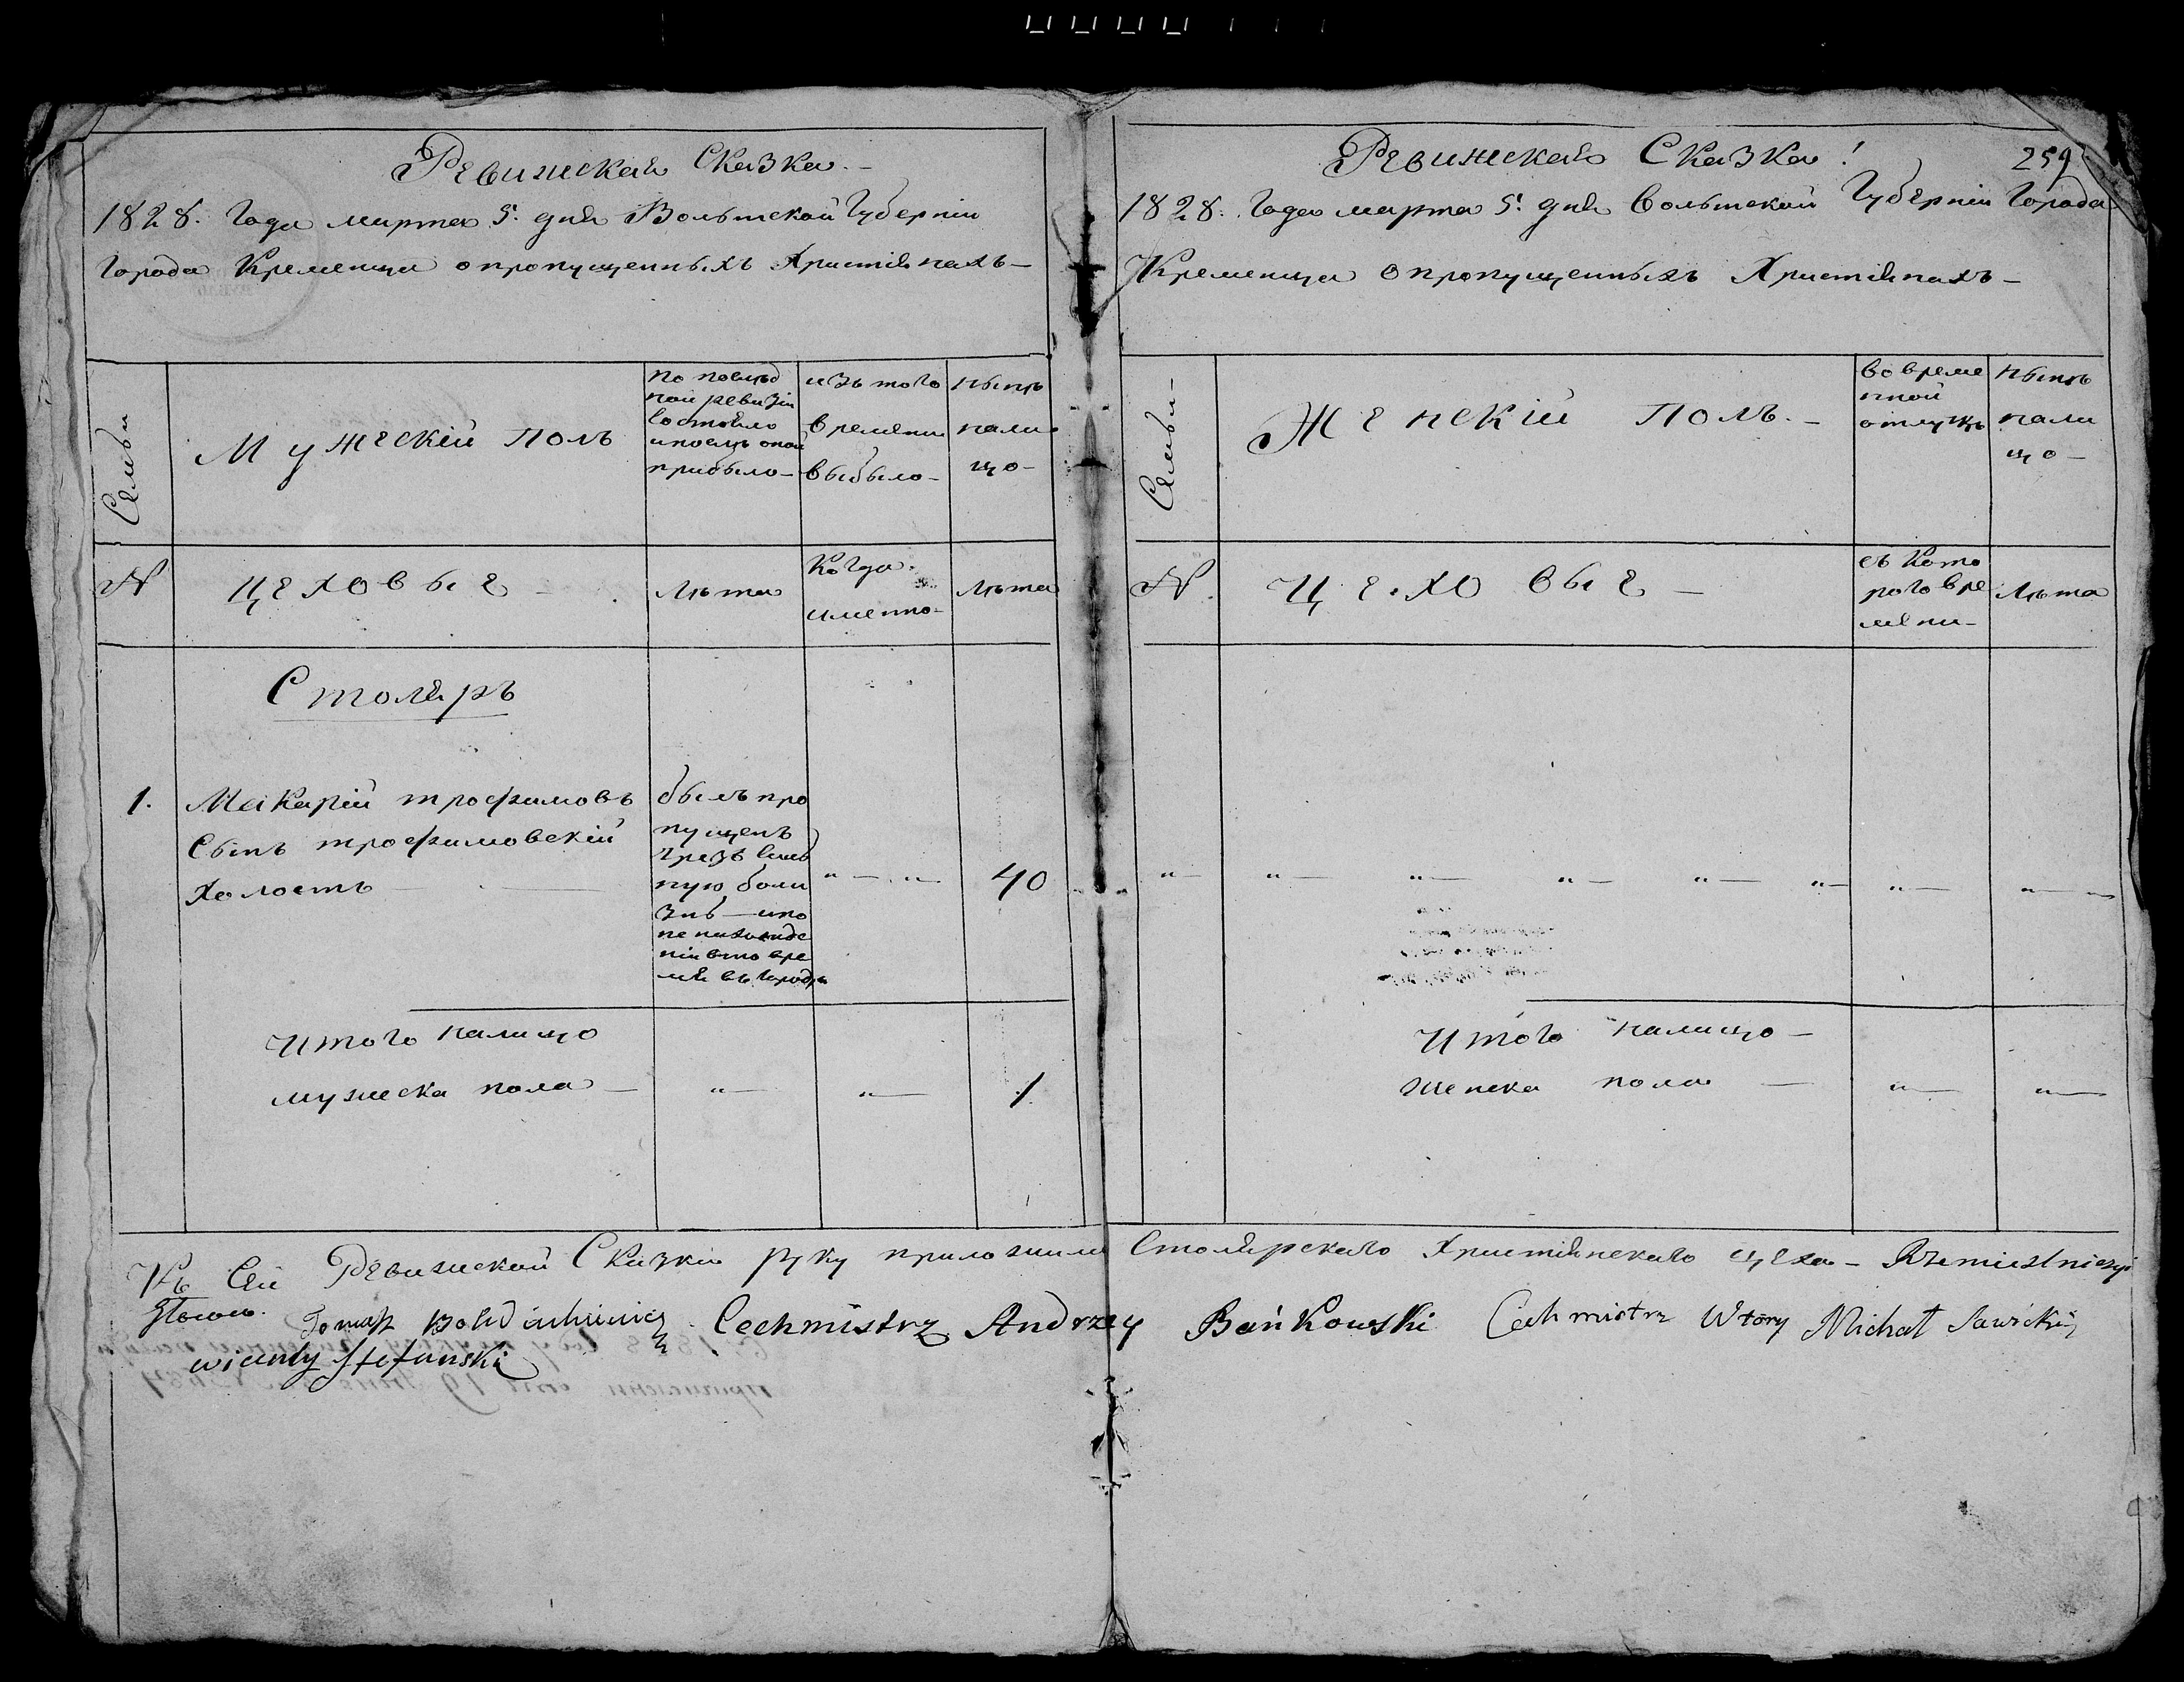 Ревижская Сказка.-
1828. Года марта 5. дня Волынской Губерніи
Города Кременца о пропущенныхъ Христіянахъ-
Семьи
Мужескій Полъ
по послед
ней ревизіи
состояло
и после оной
прибыло-
изъ того
времени
выбыло-
ныне
нали
цо-
N
Цеховые -
лета
Когда
именно-
лета
Столяръ
1.
Макарій трофимовъ
Сынъ трофимовскій
Холостъ -
былъ про
пущенъ
чрезъ
ную боли
знь - и по
не нахожде
нію в то вре
мя въ городе
" - " -
40
Итого налицо
мужеска пола -
" -
" -
1
Ревижская Сказка!
259
1828. Года марта 5. дня Волынской Губерніи Города
Кременца о пропущенныхъ Христіянахъ -
Семьи -
Женскій Полъ. -
во време
нной
отлучке
ныне
нали
цо -
N.
Цеховые -
съ Кото
рого вре
мени -
лета
" - " - " - " - " - " - " - " -
Итого налицо -
женска пола -
" -
" -
Къ Сей Ревижской Сказки руку приложили Столярскаго Христіянскаго цеха - Rzemieslniczy
Tomasz Cechmistrz Andrzey Bańkowski Cechmistrz Wtóry Michał Sawicki
wicenty Stefanski